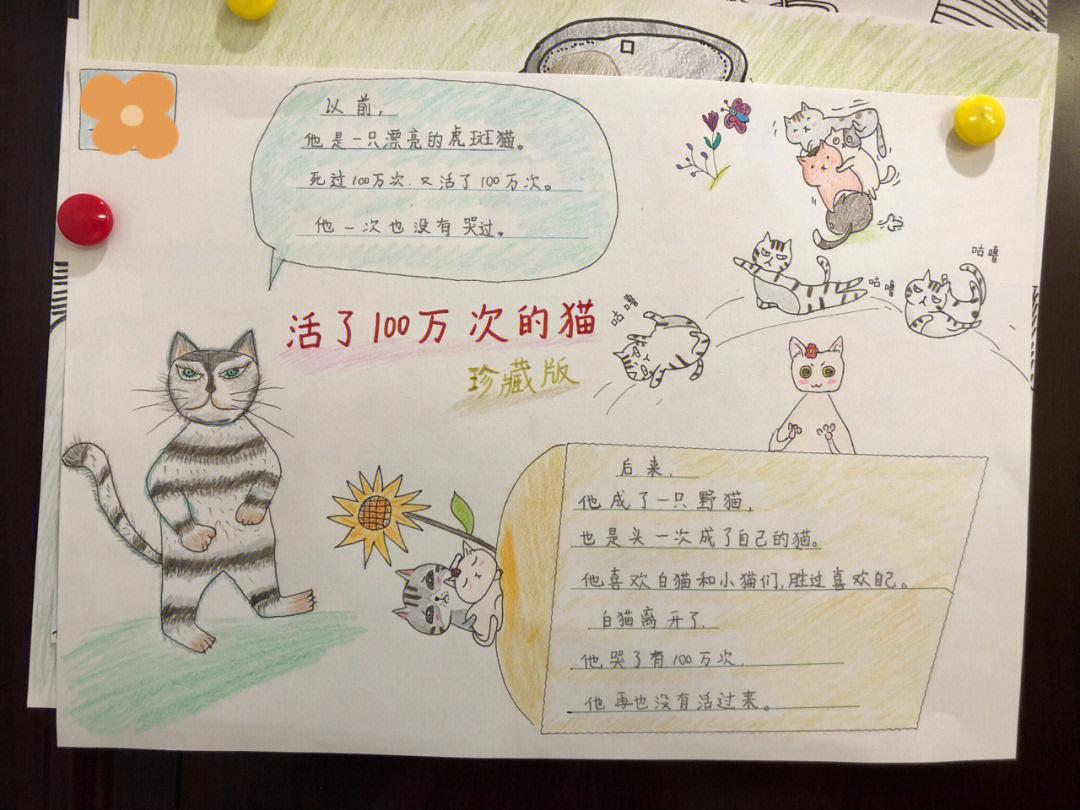 以前，
他是一只漂亮的虎斑猫。
死过100万次，又活了100万次。
他一次也没有哭过。
活了100万次的猫
珍藏版
咕噜
咕噜
咕噜
后来，
他成了一只野猫，
也是头一次成了自己的猫。
他喜欢白猫和小猫们，胜过喜欢自己。
白猫离开了，
他哭了有100万次，
他再也没有活过来。